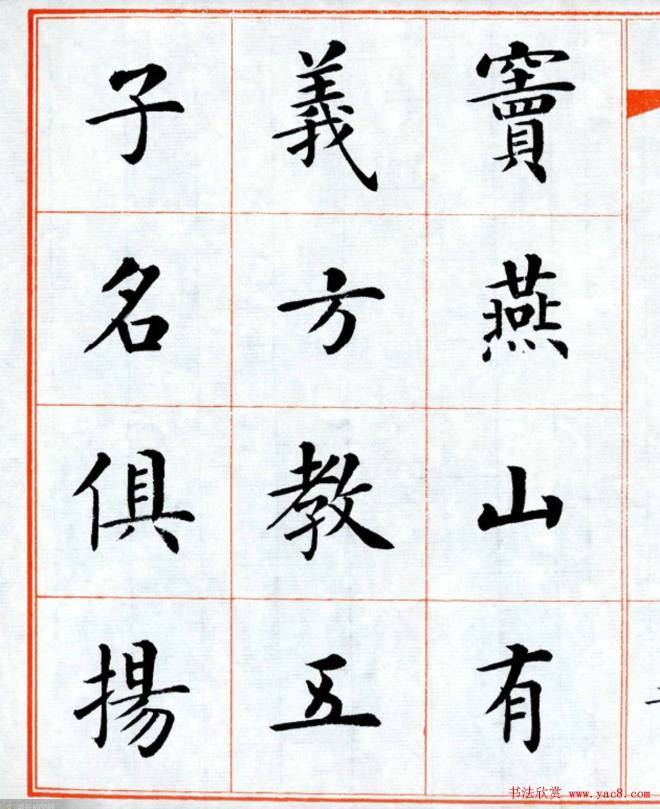 竇燕山有
義方教五
子名俱揚
书法欣赏 www.yac8.com